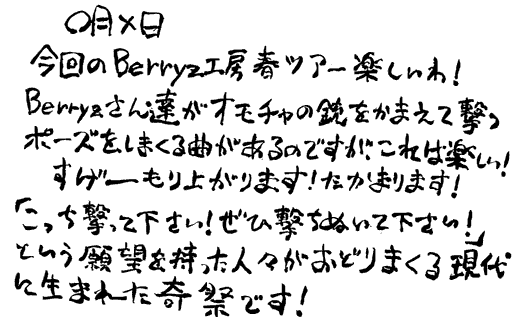 〇月×日
今回のBerryz工房春ツアー楽しいわ!
Berryzさん達がオモチャの銃をかまえて撃つ
ポーズをしまくる曲があるのですが、これは楽しい!
すげーもり上がります!たかまります!
「こっち撃って下さい!ぜひ撃ちぬいて下さい!」
という願望を持った人々がおどりまくる現代
に生まれた奇祭です!